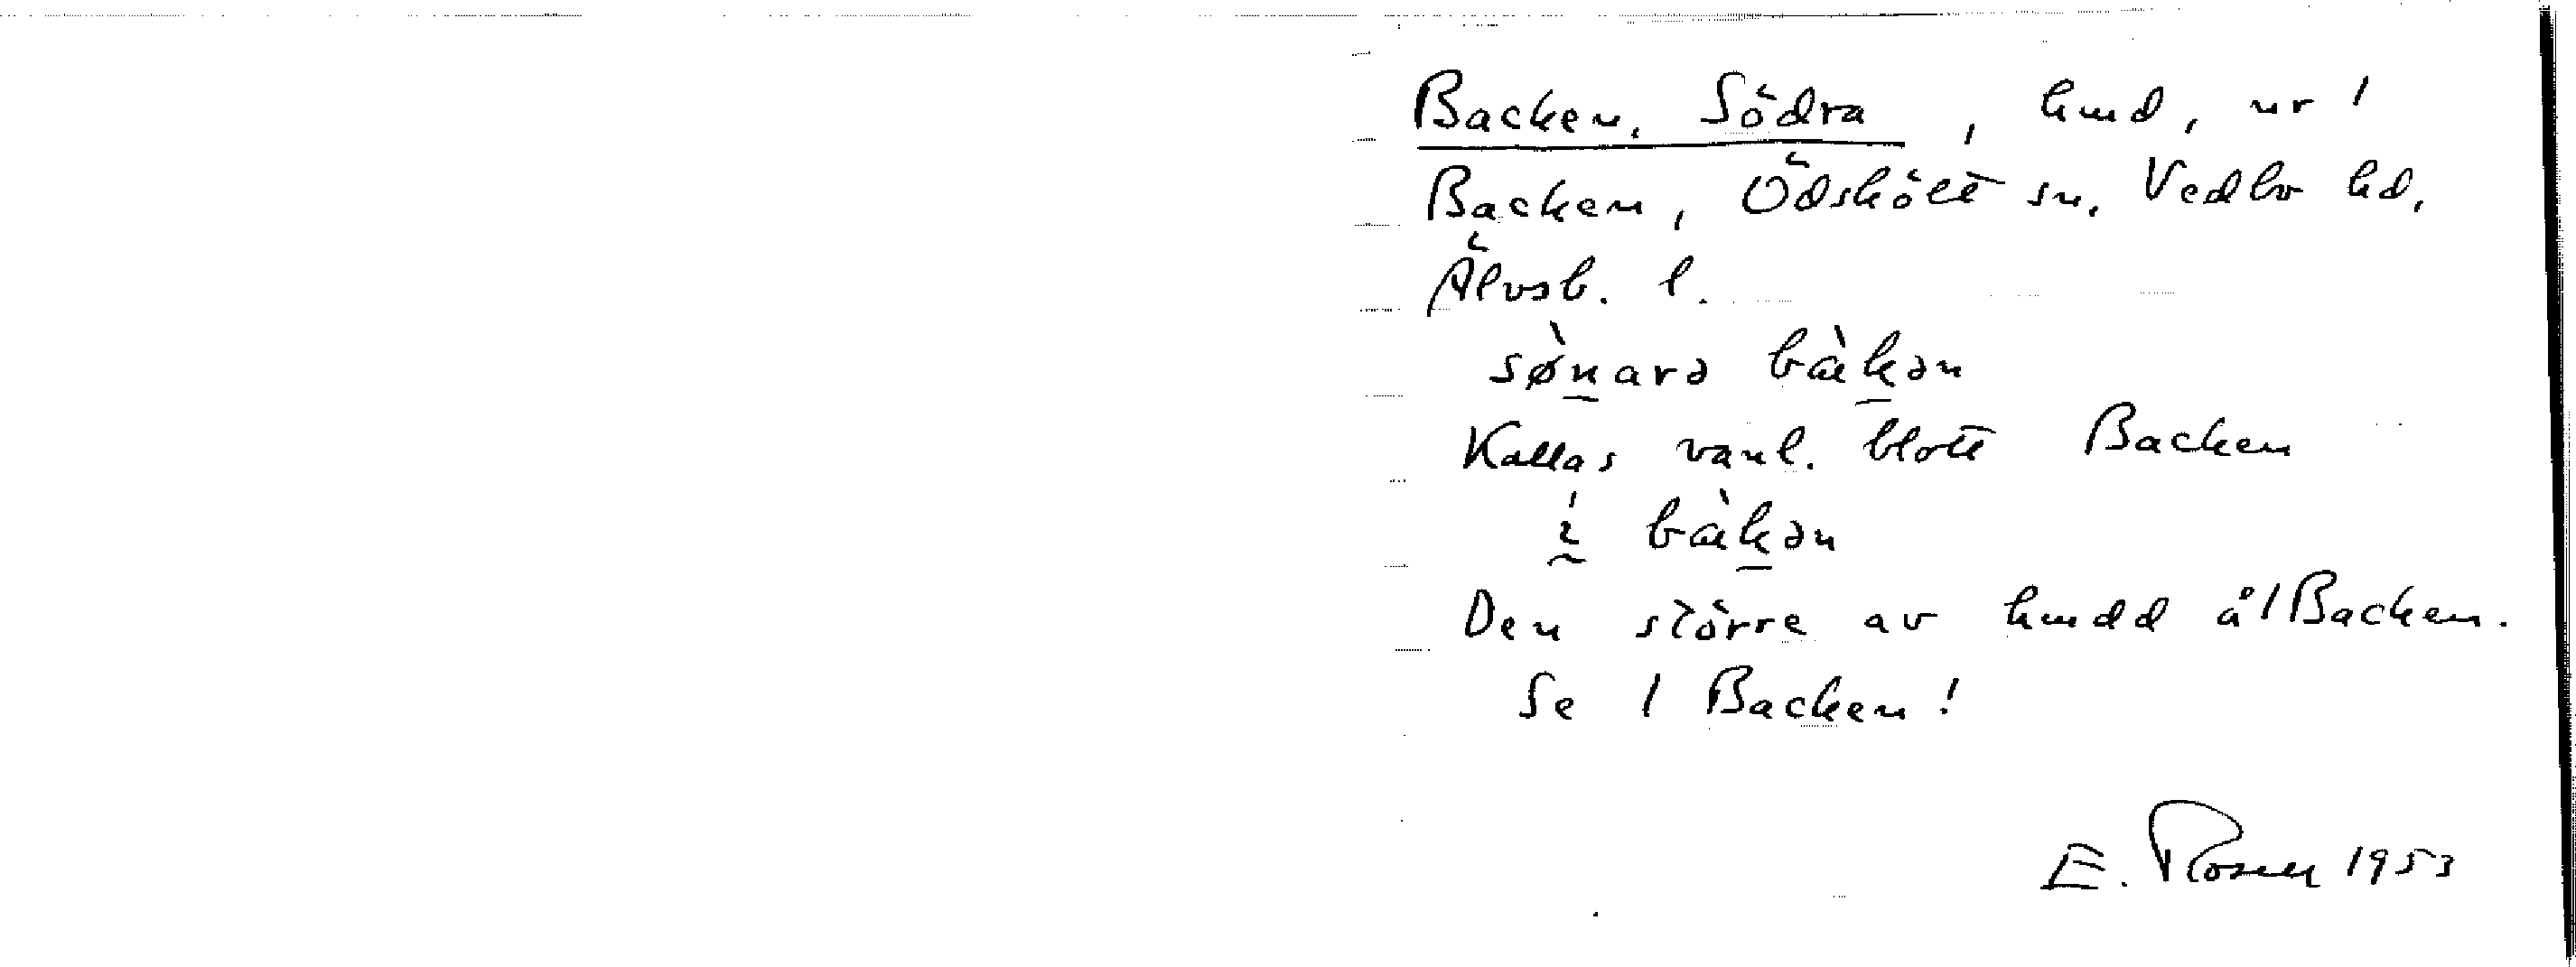 Backen, Södra, hmd, nr 1
Backen, Ödskölt sn, Vedbo hd,
Älvsb. l.
sø̀narə bàkən
Kallas vanl. blott Backen
í bàkən
Den större av hmdd å 1 Backen.
Se 1 Backen!
E. Rosell 1953